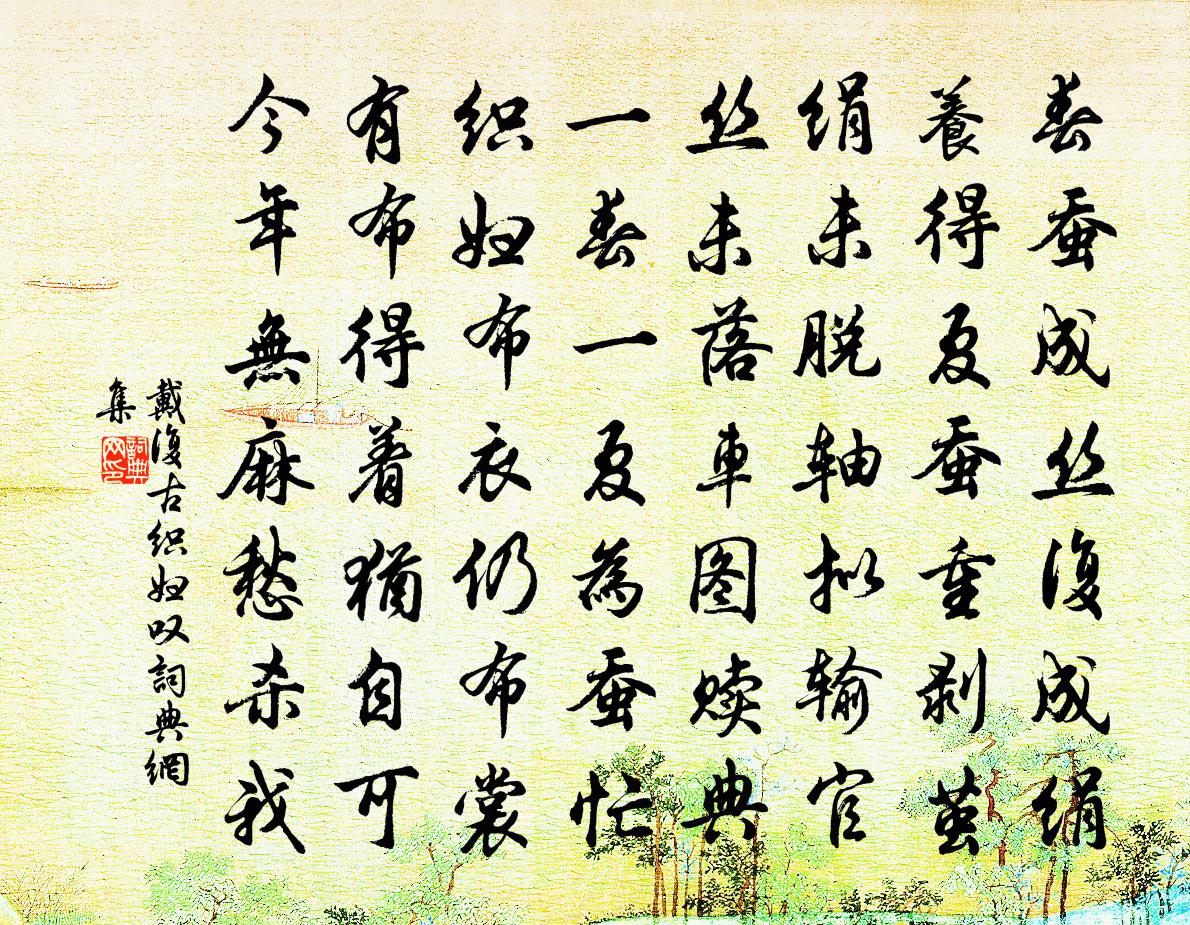 春蚕成丝復成绢
養得夏蚕重剥茧
绢未脱轴拟输官
丝未落車图赎典
一春一夏為蚕忙
织妇布衣仍布裳
有布得着猶自可
今年無麻愁杀我
戴復古织妇叹詞典網
集
詞典
网印